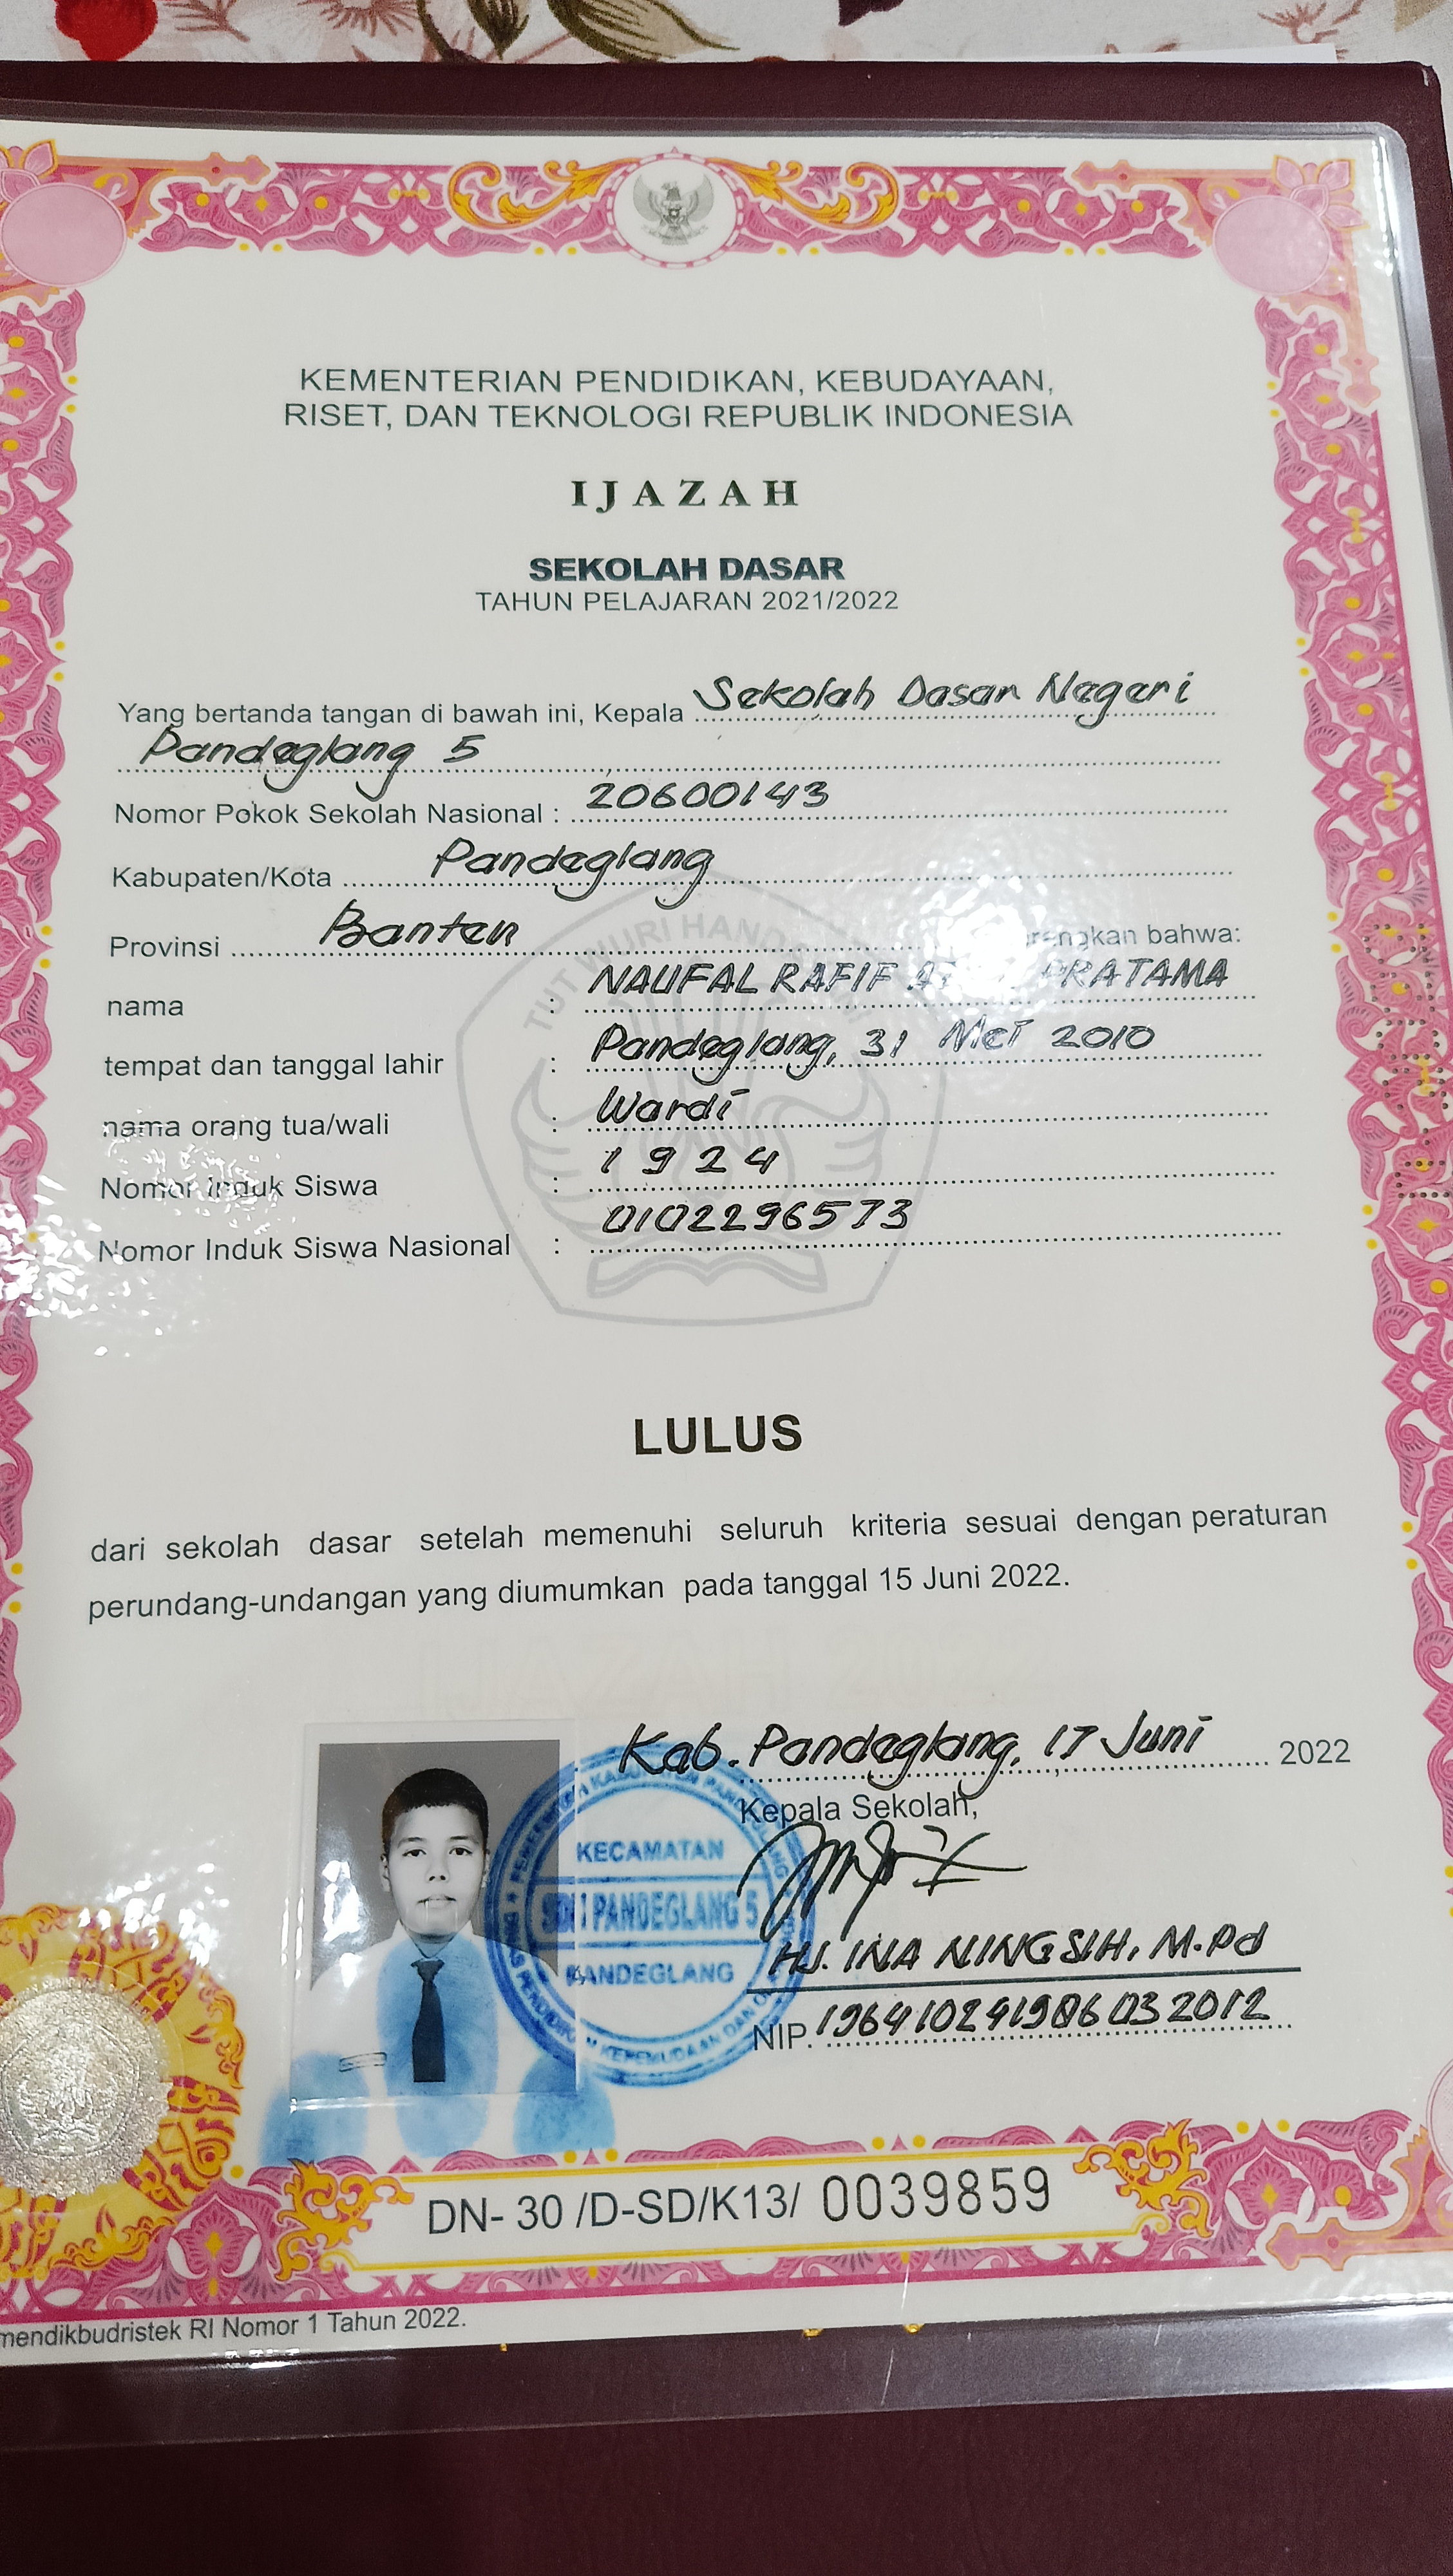 KEMENTERIAN PENDIDIKAN, KEBUDAYAAN,
RISET, DAN TEKNOLOGI REPUBLIK INDONESIA
IJAZAH
SEKOLAH DASAR
TAHUN PELAJARAN 2021/2022
Yang bertanda tangan di bawah ini, Kepala Sekolah Dasar Negeri
Pandeglang 5
Nomor Pokok Sekolah Nasional : 20600143
Kabupaten/Kota Pandeglang
Provinsi Banten bahwa:
nama : NAUFAL RAFIF PRATAMA
tempat dan tanggal lahir : Pandeglang, 31 Mei 2010
nama orang tua/wali : Wardi
Nomor Induk Siswa : 1924
Nomor Induk Siswa Nasional : 0102296573
TUT WURI
LULUS
dari sekolah dasar setelah memenuhi seluruh kriteria sesuai dengan peraturan
perundang-undangan yang diumumkan pada tanggal 15 Juni 2022.
Kab. Pandeglang, 17 Juni 2022
Kepala Sekolah,
KECAMATAN
PANDEGLANG 5
PANDEGLANG
HJ. INA NINGSIH, M.Pd
NIP. 196410241986032012
DN- 30 /D-SD/K13/ 0039859
RI Nomor 1 Tahun 2022.